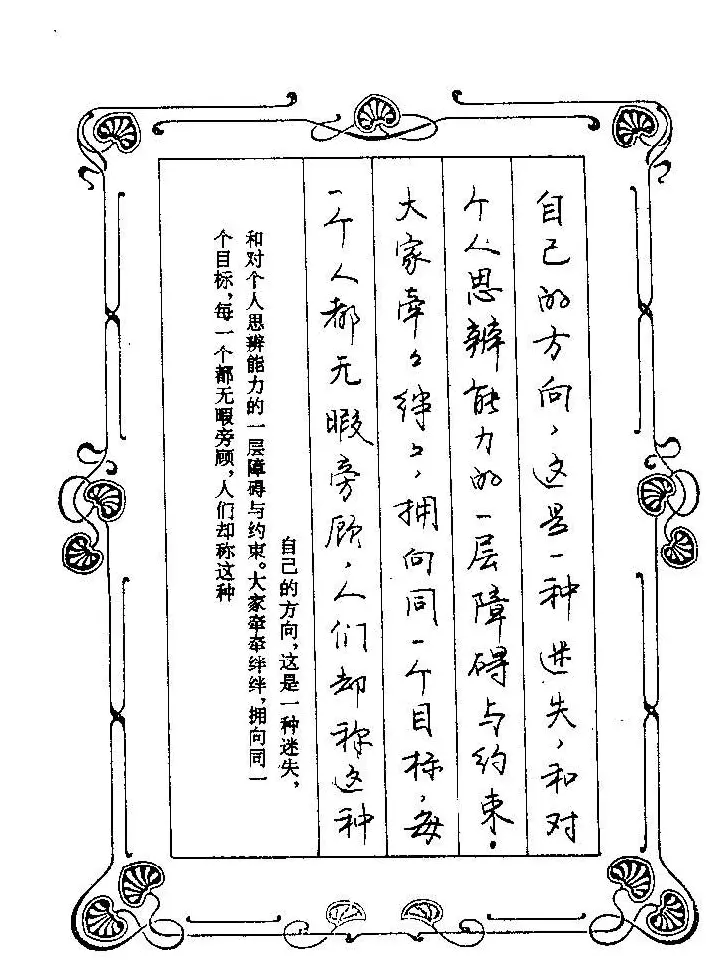 自己的方向,这是一种迷失,和对
个人思辨能力的一层障碍与约束.
大家牵々绊々,拥向同一个目标,每
一个人都无暇旁顾,人们却称这种
自己的方向,这是一种迷失,
和对个人思辨能力的一层障碍与约束。大家牵牵绊绊,拥向同一
个目标,每一个都无暇旁顾,人们却称这种